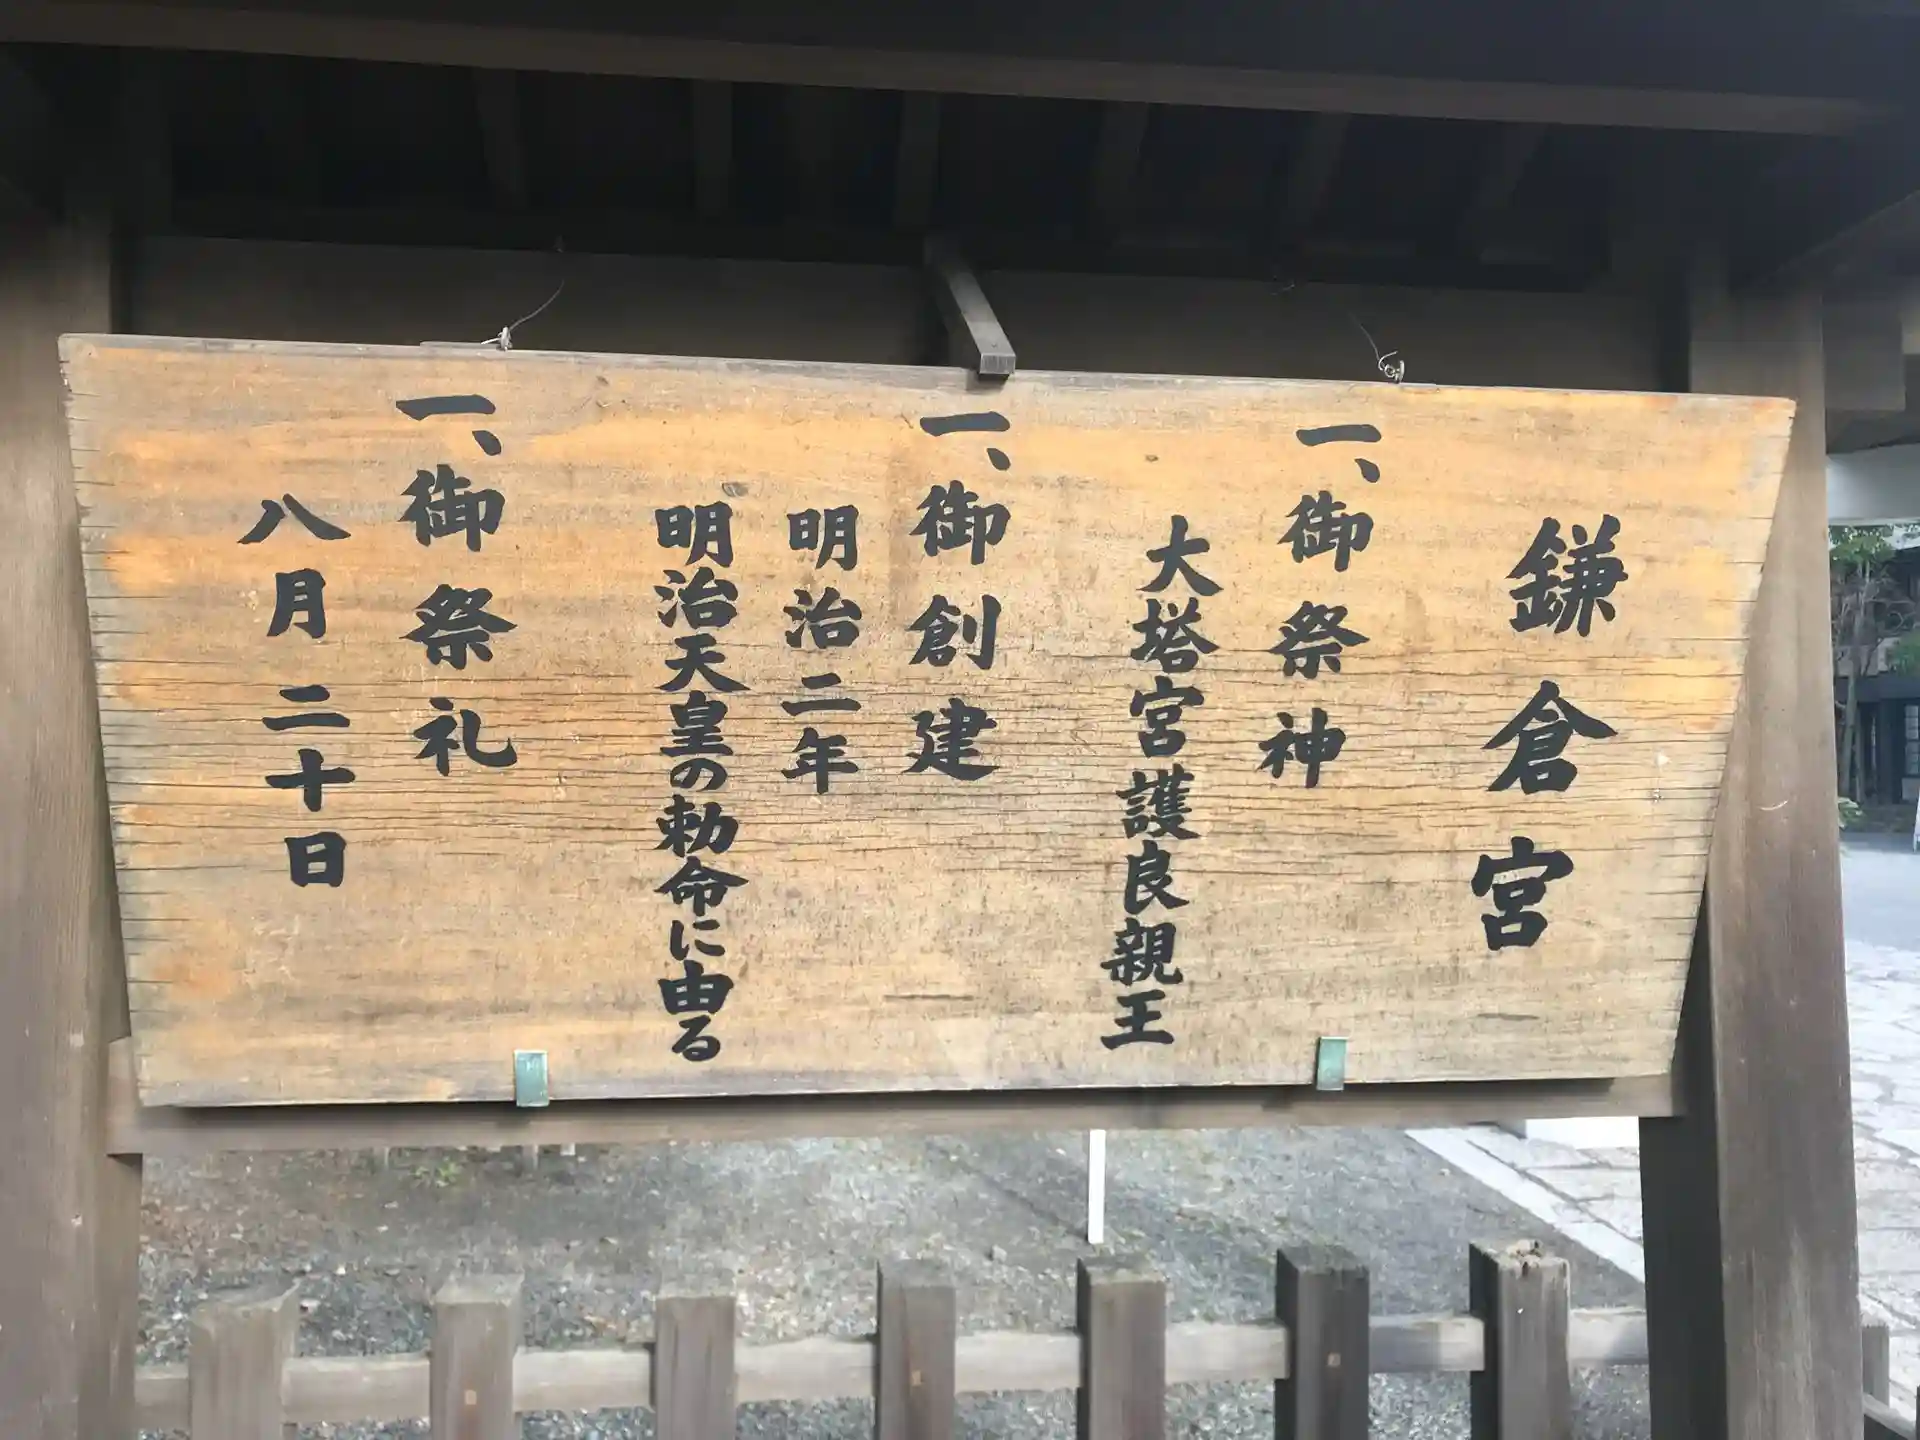 鎌倉宮
一、御祭神
大塔宮護良親王
一、御創建
明治二年
明治天皇の勅命に由る
一、御祭礼
八月二十日